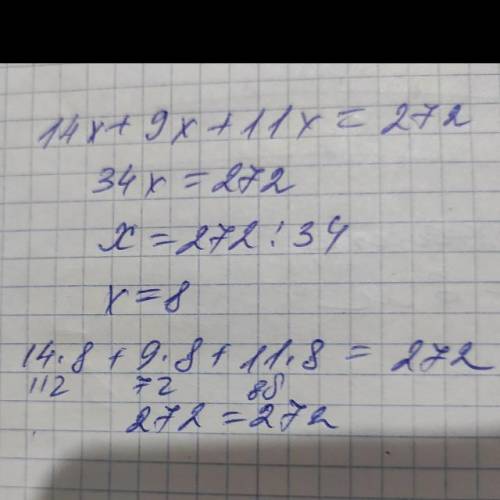 14x+9x+11x=272
34x=272
x=272:34
x=8
14·8+9·8+11·8=272
112 72 88
272=272